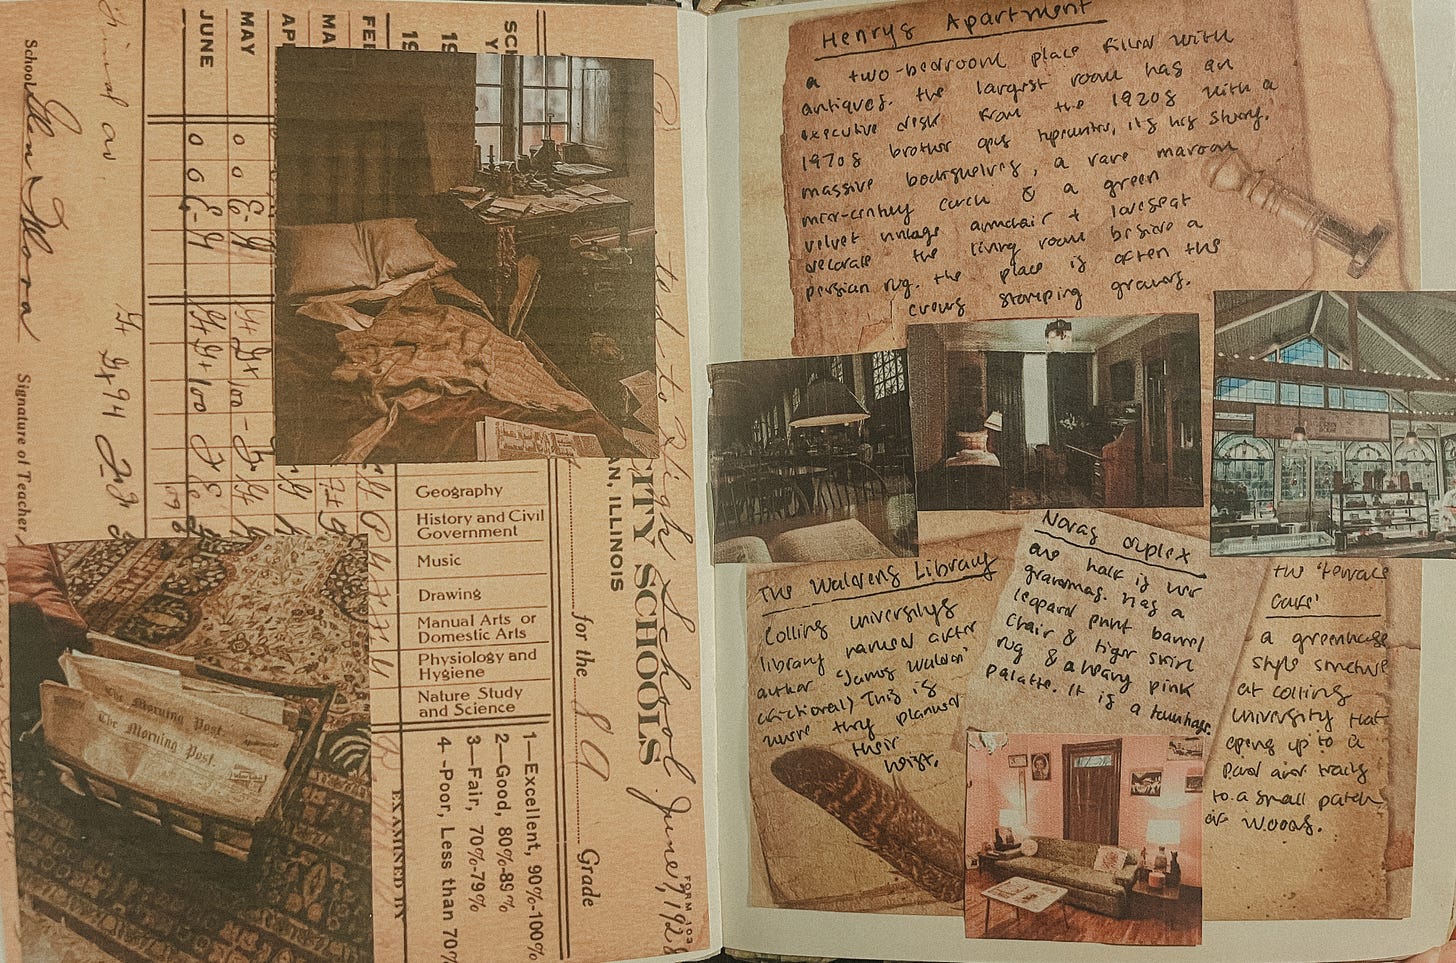 School
Signature of Teacher
JUNE
MAY
FEB
Geography
History and Civil
Government
Music
Drawing
Manual Arts or
Domestic Arts
Physiology and
Hygiene
Nature Study
and Science
1—Excellent, 90%-100%
2—Good, 80%-89%
3—Fair, 70%-79%
4-Poor, Less than 70%
EXAMINED BY
ILLINOIS
SCHOOLS
for the
Grade
to High School June 9, 1928
FORM 103
The Morning Post.
The Morning Post.
Henrys Apartment
a two-bedroom place filled with
antiques. the largest room has an
executive desk from the 1920s with a
1970s brother opus typewriter, its his study.
massive bookshelves, a rare maroon
mid-century couch & a green
velvet vintage armchair + loveseat
decorate the living room beside a
persian rug. the place is often the
crows stomping grounds.
The Waldens Library
Collins universitys
library named after
author 'James Walden'
(fictional) This is
where they planned
their
heist.
Noras duplex
one half is her
grandmas. Has a
leopard print barrel
chair & tiger skin
rug & a heavy pink
palatte. It is a townhouse.
the 'terrace
cafe'
a greenhouse
style structure
at collins
university that
opens up to a
pond and trails
to a small patch
of woods.